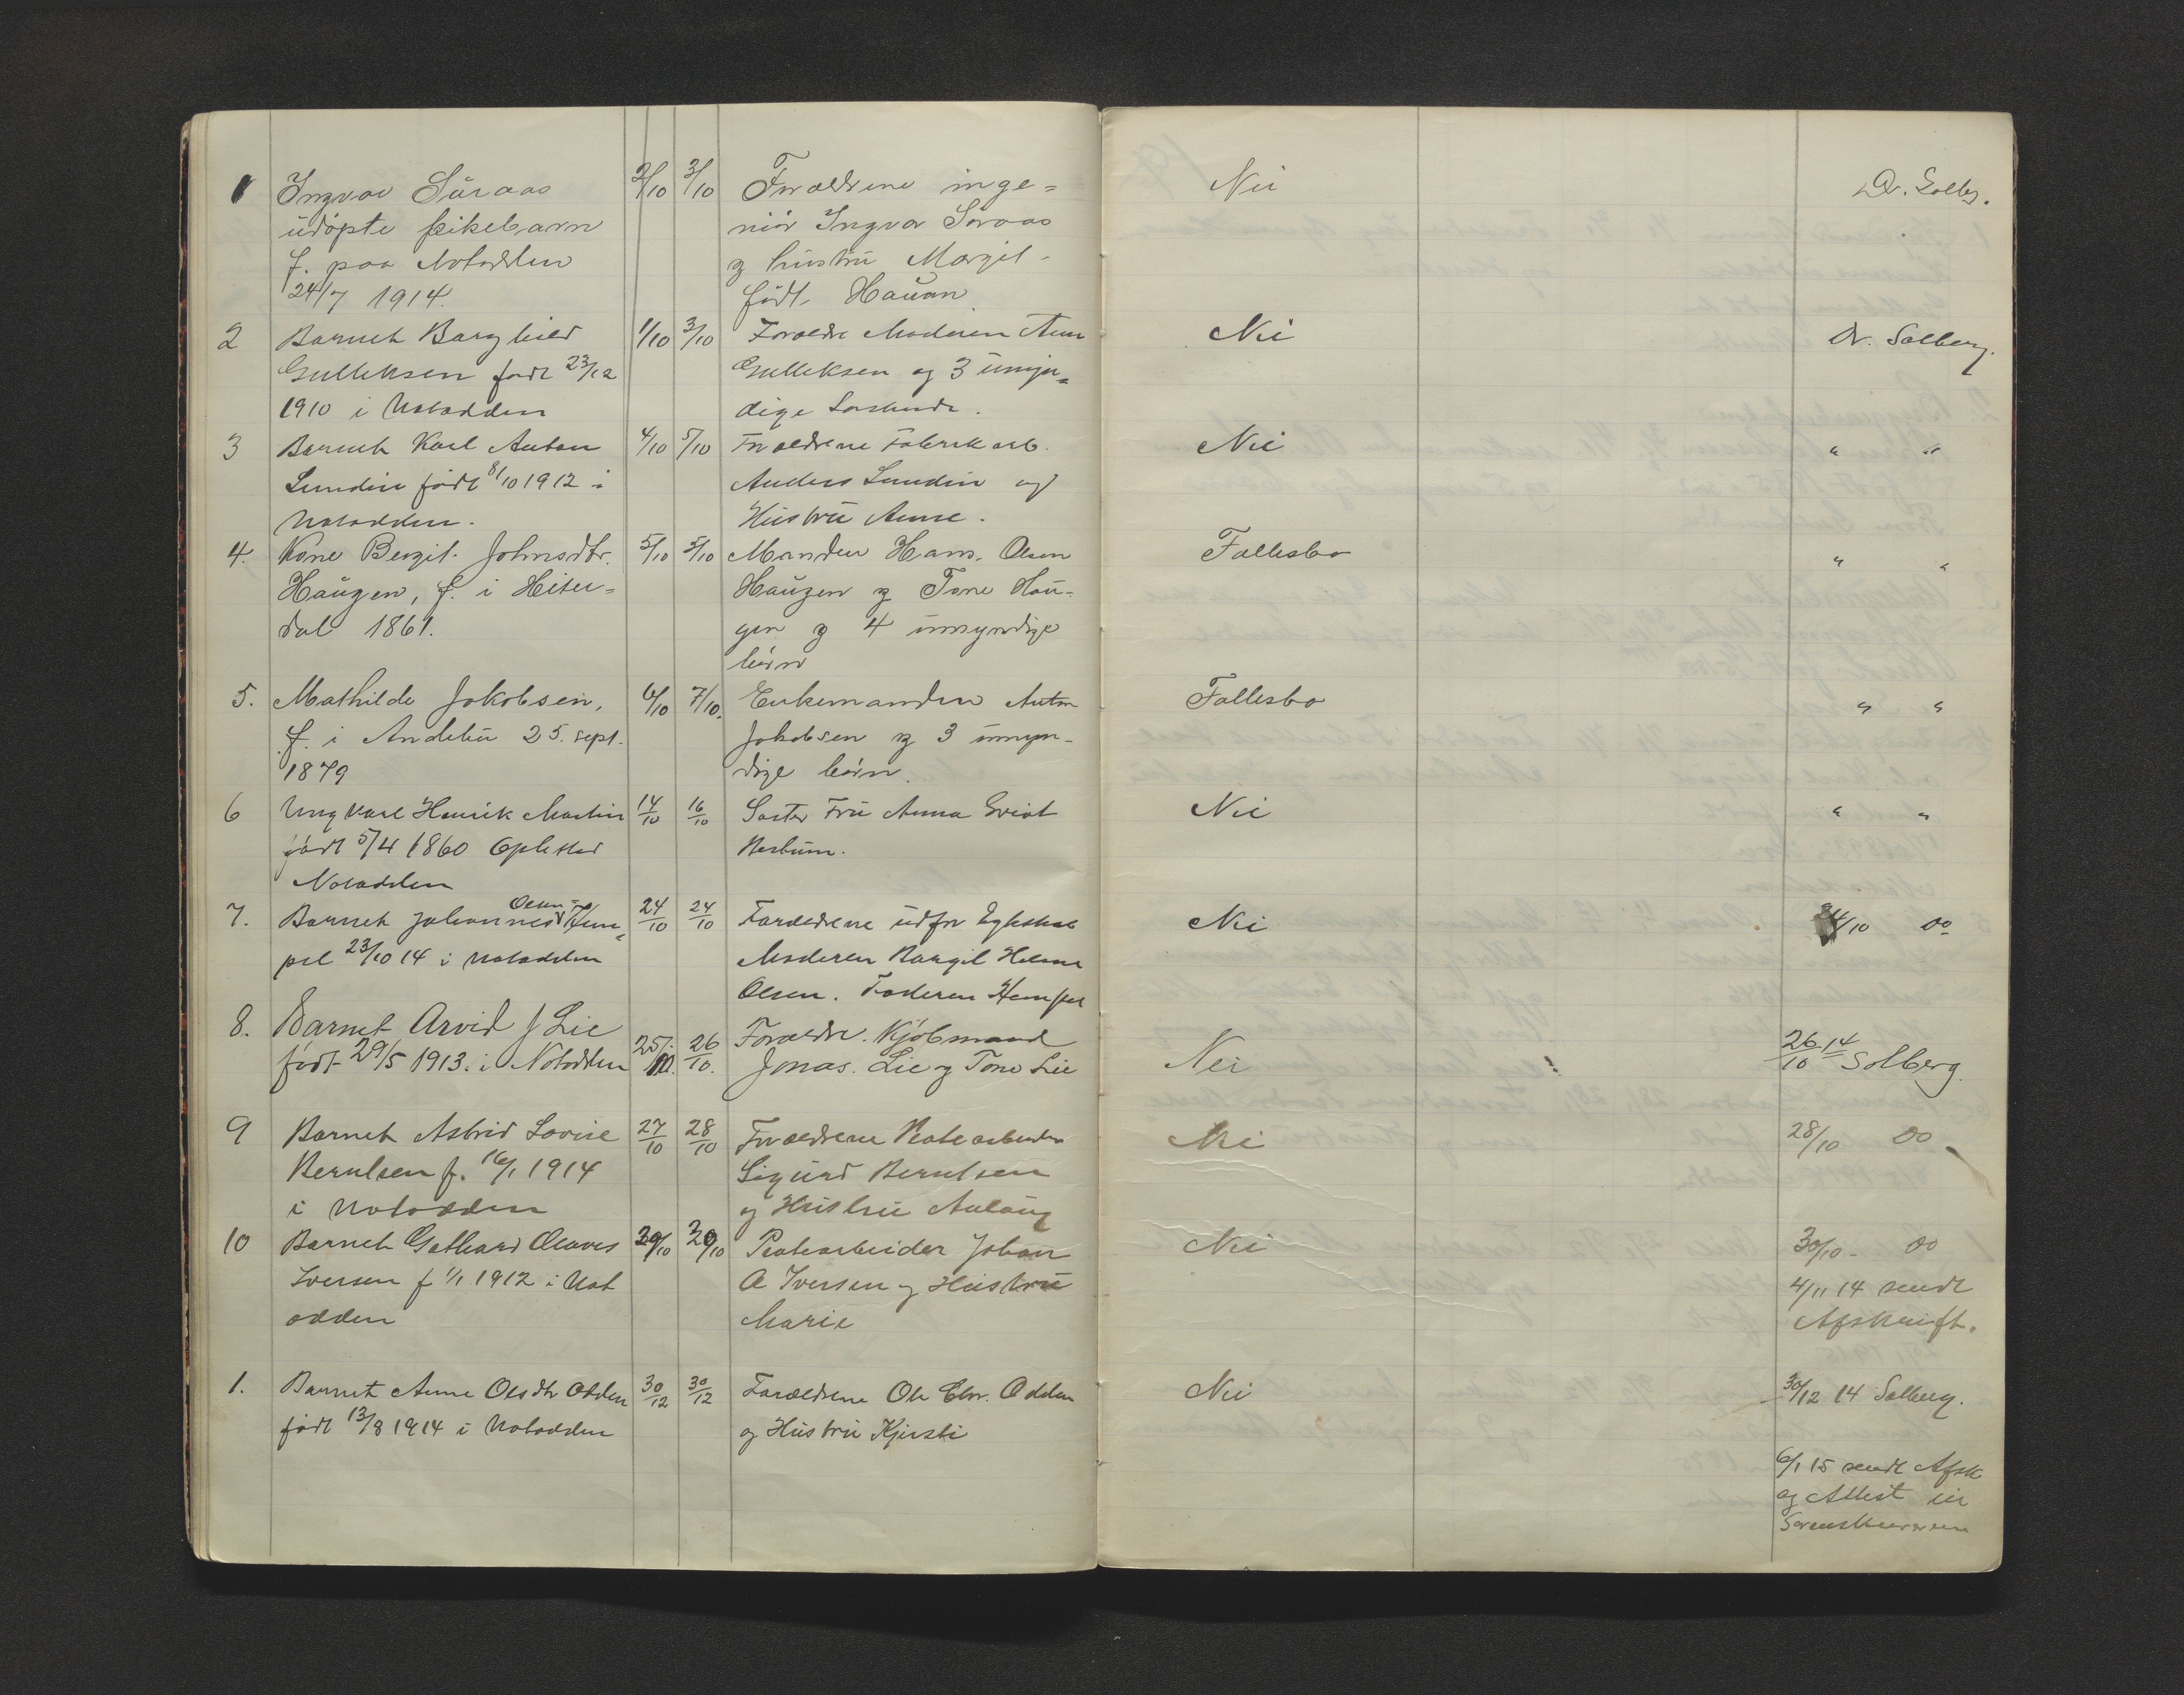 1 Ingvar Süraas 2/10 3/10 Forældrene inge= Nei Dr. Solbg.
udøpte pikebarn niør Ingvar Søraas
f. paa Notodden og hustru Margit
24/7 1914. født Hauan
2 Barnet Borghild 1/10 3/10 Forældre Moderen Anne Nei Dr. Solberg.
Gulleksen født 23/12 Gulleksen og 3 umyn=
1910 i Notodden dige Søskende.
3 Barnet Karl Anton 4/10 5/10 Forældrene Fabrikarb. Nei " "
Lundin født 8/10 1912 i Anders Lundin og
Notodden. Hustru Anne.
4. Kone Bergit Johnsdtr. 5/10 5/10 Manden Hans Olsen Fællesbo " "
Haugen, f. i Hiter= Haugen og Tone Hau=
dal 1861. gen og 4 umyndige
børn
5. Mathilde Jakobsen, 6/10 7/10. Enkemanden Anton Fællesbo " "
f. i Andebu 25. sept. Jakobsen og 3 umyn=
1879 dige børn.
6 Ungkarl Henrik Martin 14/10 16/10 Søster Fru Anna Nei " "
født 5/4 1860
Notodden
7. Barnet Johannes Olsen Hem= 24/10 24/10 Forældrene udfor Egteskab Nei 24/10 Do
pel 23/10 14 i Notodden Moderen Helene
Olsen. Faderen Hempel
8. Barnet Arvid J Lie 25/10. 26/10. Forældre. Kjøbmand Nei 26/10 14 Solberg.
født 29/5 1913. i Notodden Jonas. Lie og Tone Lie
9 Barnet Astrid Lovise 27/10 28/10 Forældrene Nei 28/10 Do
Berntsen f. 16/1 1914 Sigurd Berntsen
i Notodden og Hustru Aslaug
10 Barnet Gothard Olaves 29/10 30/10 Johan Nei 30/10 - Do
Iversen f 1/1 1912 i Not A Iversen og Hustru 4/11 14 sendt
odden Marie Afskrift.
1. Barnet Anne Olsdtr Odden 30/12 30/12 Forældrene Ole Chr. Odden Nei 30/12 14 Solberg.
født 13/8 1914 i Notodden og Hustru Kjersti
6/1 15 sendt Afsk
og Attest til
Sorenskriveren